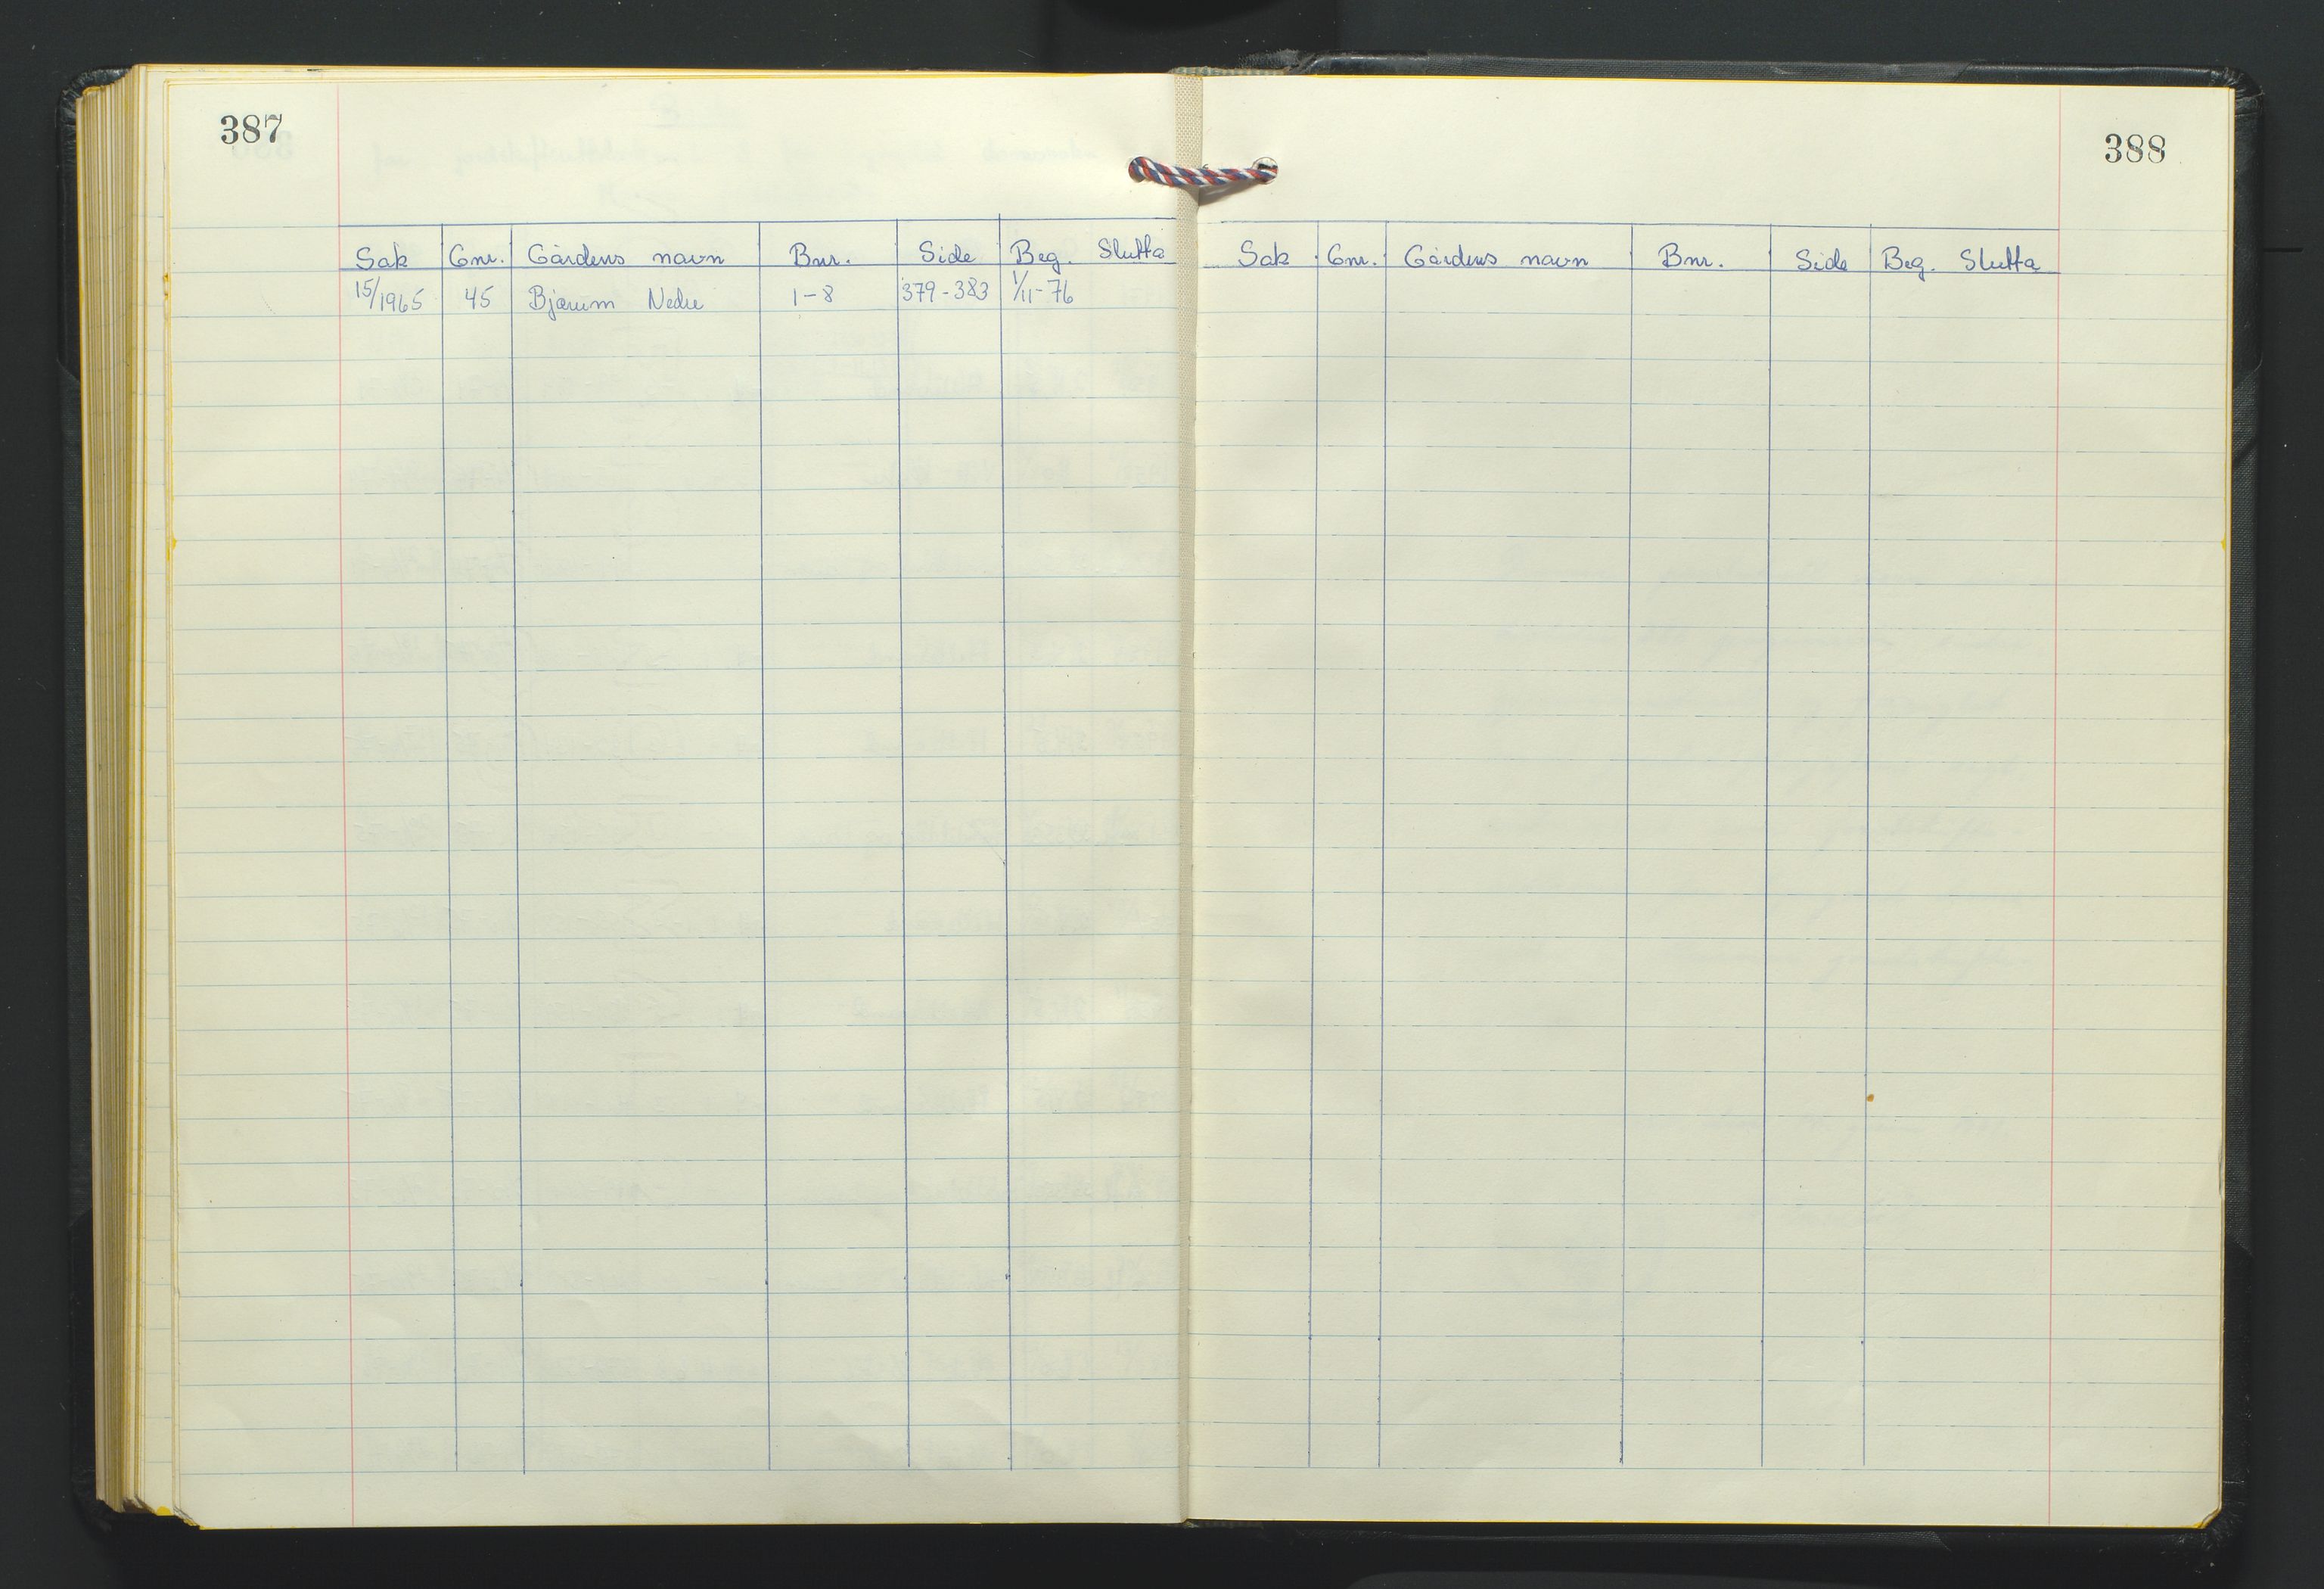 387
Sak Gnr. Gårdens navn Bnr. Side Beg. Slutta
15/1965 45 Bjørum Nedre 1-8 379-383 1/11-76
388
Sak Gnr. Gårdens navn Bnr. Side Beg. Slutta